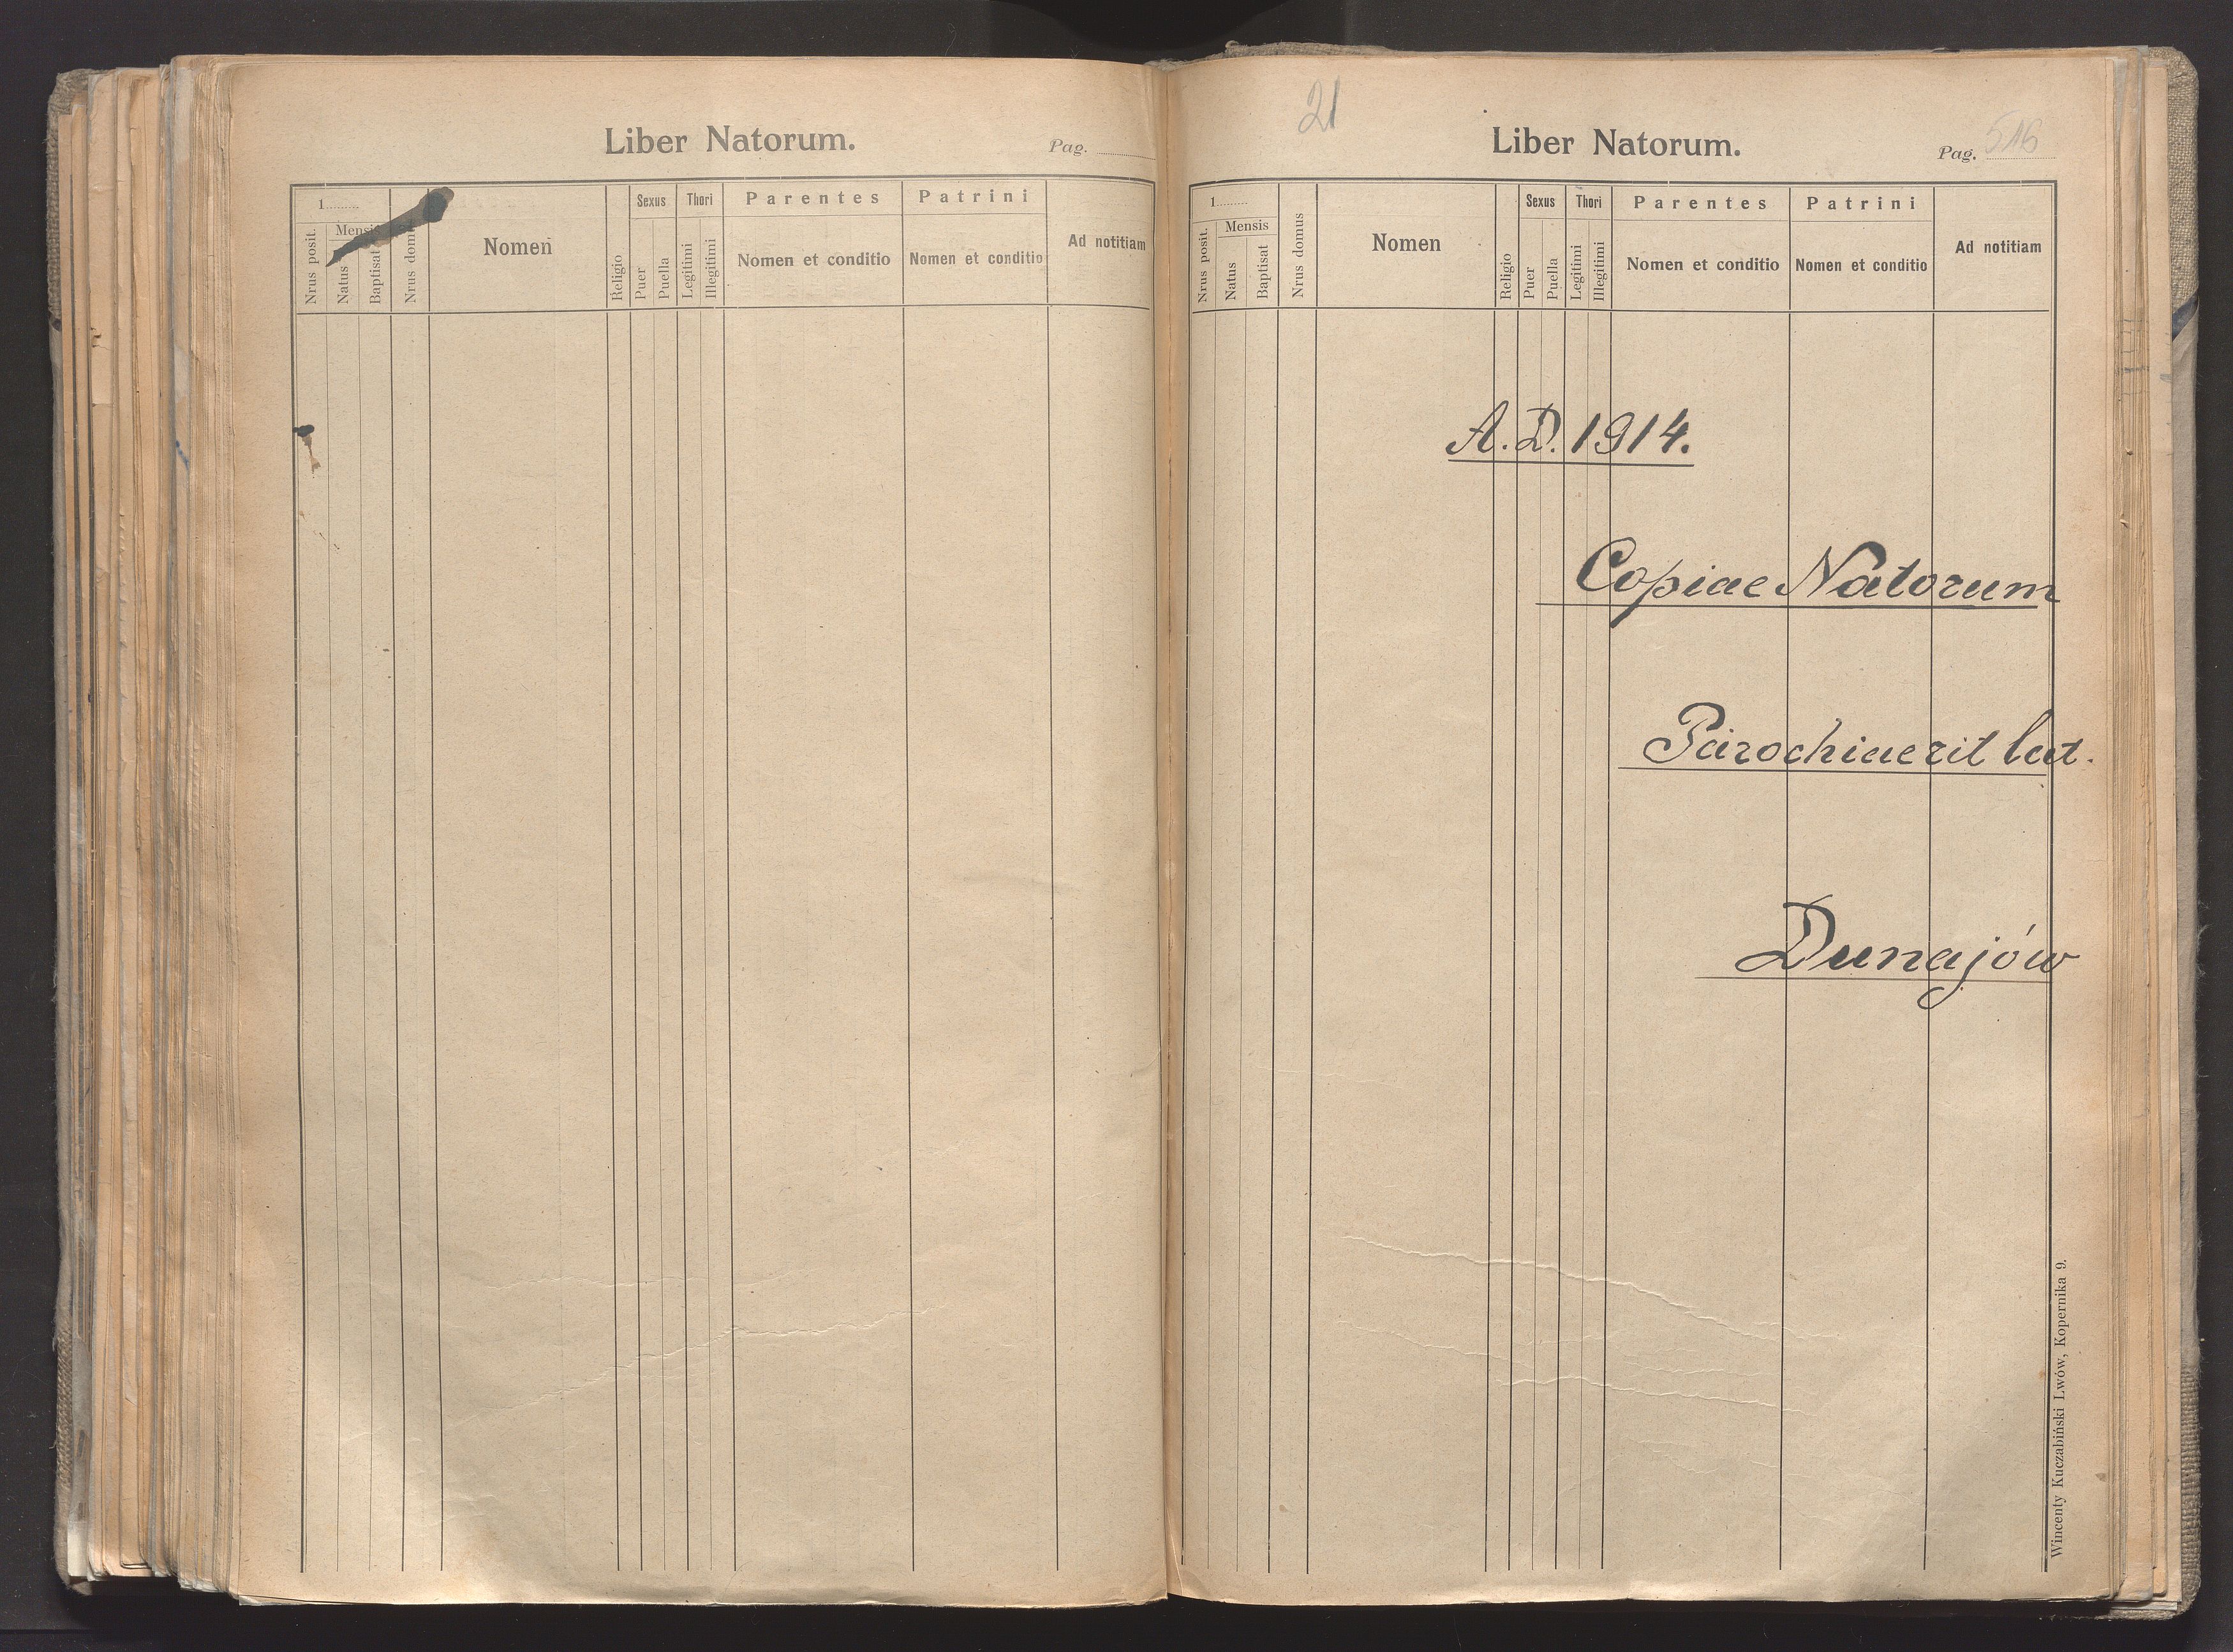 Liber Natorum.
Pag.
1
Mensis
Nrus posit.
Natus
Baptisat
Nrus domus
Nomen
Religio
Sexus
Puer
Puella
Thori
Legitimi
Illegitimi
Parentes
Nomen et conditio
Patrini
Nomen et conditio
Ad notitiam
21
Liber Natorum.
Pag. 516
1
Mensis
Nrus posit.
Natus
Baptisat
Nrus domus
Nomen
Religio
Sexus
Puer
Puella
Thori
Legitimi
Illegitimi
Parentes
Nomen et conditio
Patrini
Nomen et conditio
Ad notitiam
A. D. 1914.
Copiae Natorum
Parochiae rit lat.
Dunajów
Wincenty Kuczabiński Lwów, Kopernika 9.